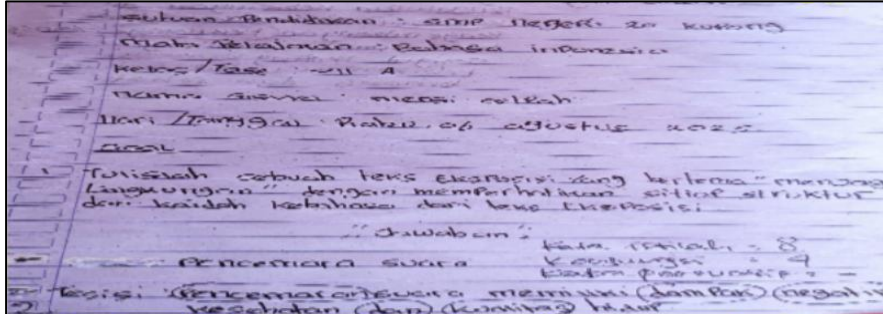 Satuan Pendidikan : SMP Negeri 20
Mata Pelajaran : Bahasa Indonesia
Kelas / Fase : VII A
Nama Siswa :
Hari / Tanggal : Rabu, 06 Agustus 2025
Soal
1. Tulislah sebuah teks eksposisi yang bertema "menjaga
Lingkungan" dengan memperhatikan setiap struktur
dan kaidah kebahasa dari teks Eksposisi
"Jawaban"
kata istilah : 8
Pencemara suara Konjungsi : 4
kata persuasip : -
Tesis : (Pencemaran) suara memiliki (dampak) (negatif)
kesehatan (dan) (kualitas) hidup